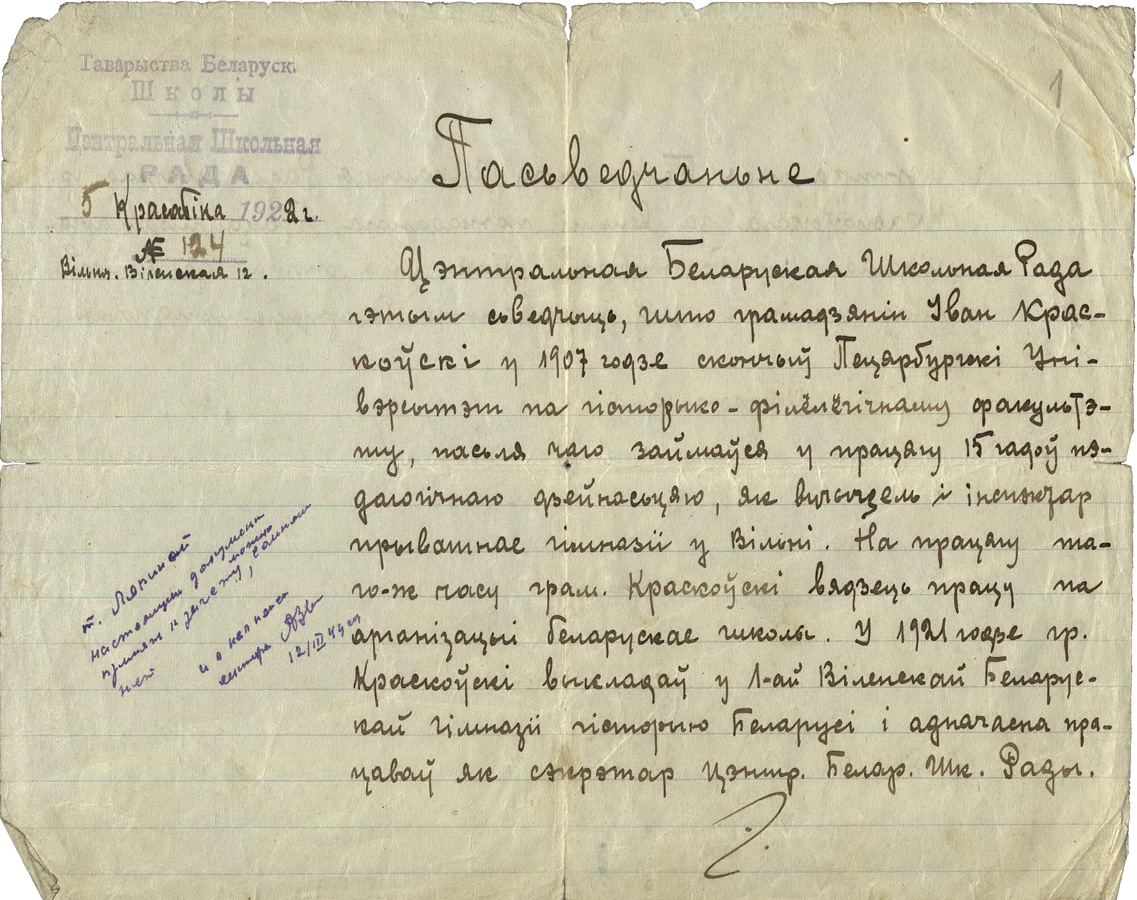 Таварыства Беларуск.
Школы
Цэнтральная Школьная
РАДА
5 Красавіка 1922 г.
№ 124
Вільня. Віленская 12.
1
Пасьведчаньне
Цэнтральная Беларуская Школьная Рада
гэтым сьведчыць, што грамадзянін Іван Крас-
коўскі у 1907 годзе скончыў Пецярбургскі Уні-
вэрсытэт па гісторыко-філёлёгічнаму факультэ-
ту, пасьля чаго займаўся у працягу 15 гадоў пэ-
дагогічнаю дзейнасьцяю, як вучыцель і інспэктар
прыватнае гімназіі у Вільні. На працягу та-
го-ж часу грам. Краскоўскі вядзець працу па
арганізацыі беларускае школы. У 1921 годзе гр.
Краскоўскі выкладаў у 1-ай Віленскай Беларус-
кай Гімназіі гісторыю Беларусі і адначасна пра-
цаваў як сэкрэтар Цэнтр. Белар. Шк. Рады.
т. Ляриной
настоящий документ
принять к зачету, можно
12/III 49 г.